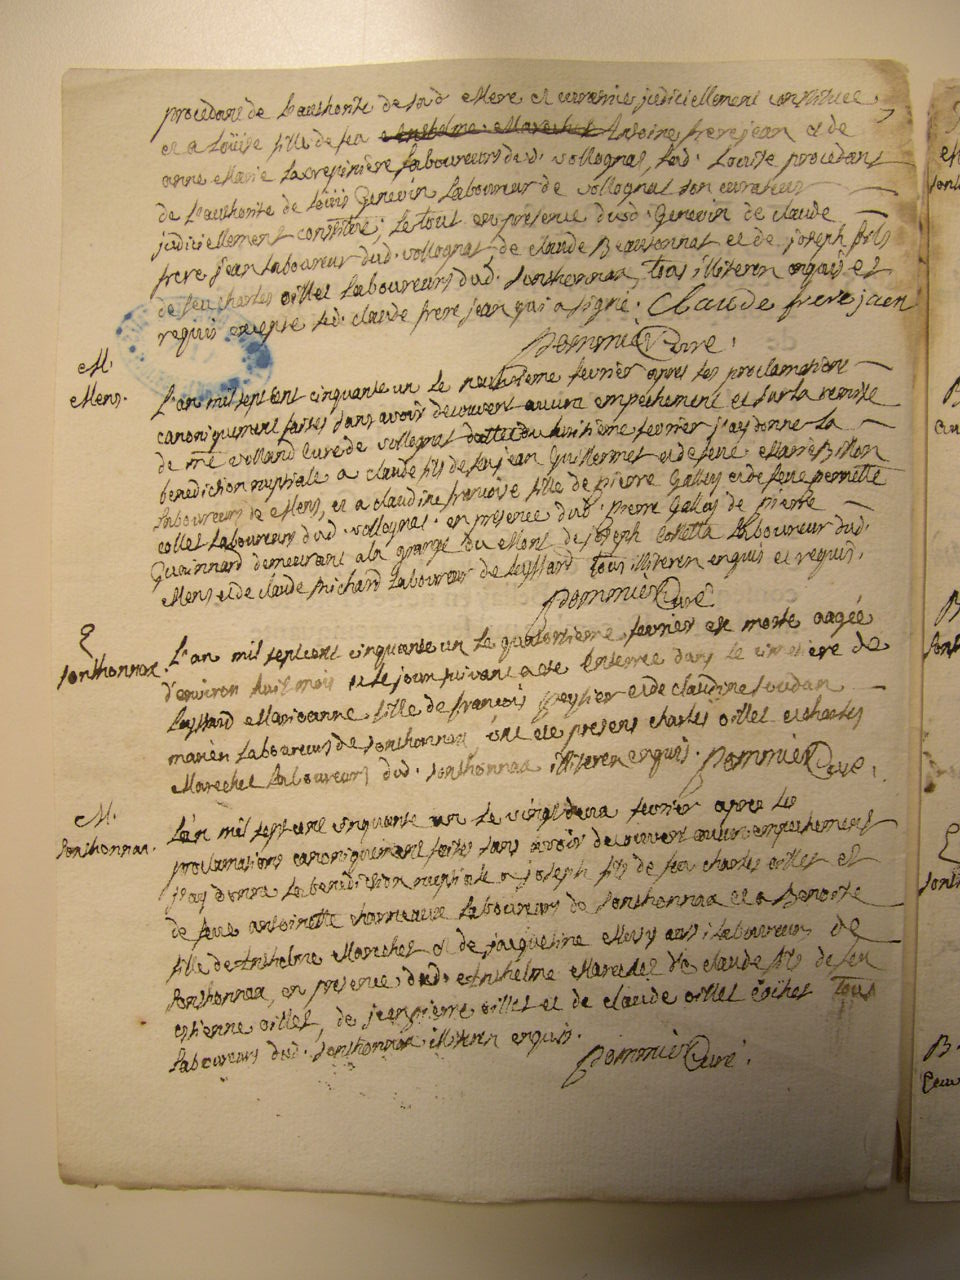 procedant de l'authorite de sad. mere et curatrice judiciellement constituee
et a Loüise fille de feu Anthelme Marechet Antoine frere jean et de
anne Marie Lacrepiniere laboureurs dud. vollognat, lad. Louise procedant
de l'authorite de Loüis Genevin laboureur de vollognat son curateur
judiciellement constitué; le tout en presence dud. Genevin de claude
frere jean laboureur dud. vollognat, de claude Beausonnat et de joseph fils
de feu charles oillet laboureurs dud. Sonthonnax, tous illiteren enquis et
requis excepte led. claude frere jean qui a signé. Claude frere jaen
Pommier Curé.
M.
Mens.
L'an mil sept cent cinquante un le neufvieme fevrier apres les proclamations
canoniquement faites sans avoir decouvert aucun empechement et sur la remise
de mre volland curé de vollognat dattee du huitieme fevrier j'ay donne la
benediction nuptiale a claude fils de feu jean Guillermet et de feue Marie Billon
laboureurs de Mens, et a claudine francoise fille de pierre Gallay et de feue pernette
collet laboureurs dud. vollognat. en presence dud. pierre Gallay de pierre
demeurant a la grange du Mont de joseph Cosetta laboureur dud.
Mens et de claude Michard laboureur de Leyssard tous illiteren enquis et requis.
Pommier Curé
E
Sonthonnax.
L'an mil sept cent cinquante un le quatorzieme fevrier est morte aagée
d'environ huit mois et le jour suivant a ete enterree dans le cimetiere de
Leyssard Marianne fille de francois peysier et de claudine soudan
mariés laboureurs de Sonthonnax, ont ete presens charles oillet et charles
Marechet laboureurs dud. Sonthonnax illiteren enquis. Pommier Curé.
M.
Sonthonnax.
L'an mil sept cent cinquante un le vingt deux fevrier apres les
proclamations canoniquement faites sans avoir decouvert aucun empechement
j'ay donne la benediction nuptiale a joseph fils de feu charles oillet et
de feue antoinette charneaux laboureurs de Sonthonnax et a Benoite
fille de Anthelme Marechet et de jacqueline aussi laboureurs de
Sonthonnax, en presence dud. Anthelme Marechet de claude fils de feu
estienne oillet, de jean pierre oillet et de claude oillet tous
laboureurs dud. Sonthonnax illiteren enquis.
Pommier Curé.